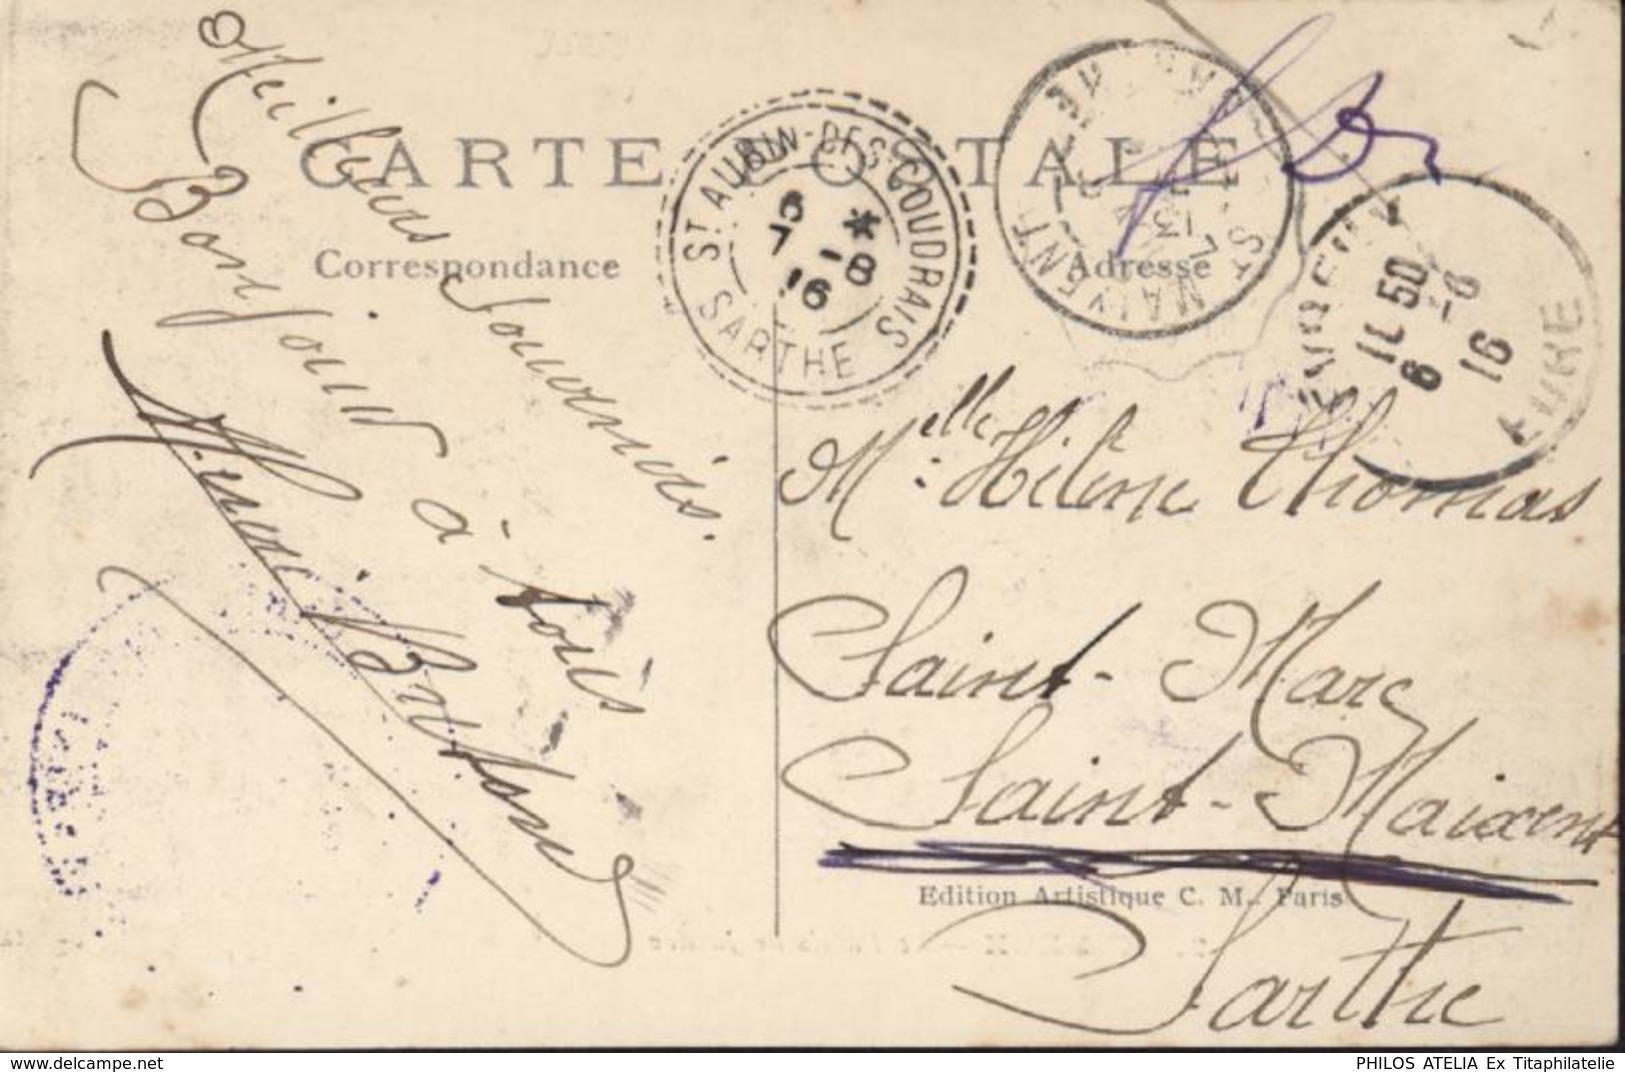 CARTE POSTALE
Correspondance
Adresse
Meilleurs Souvenirs.
Bonjour à tous
ST AUBIN-DES-COUDRAIS
6 *
7 -8
16
SARTHE
ST MAIXENT
EVREUX
11 50
6 -8
16
EURE
Melle Hélène Thomas
Saint-Marc
Saint-Maixent
Sarthe
Edition Artistique C. M., Paris
www.delcampe.net
PHILOS ATELIA Ex Titaphilatelie